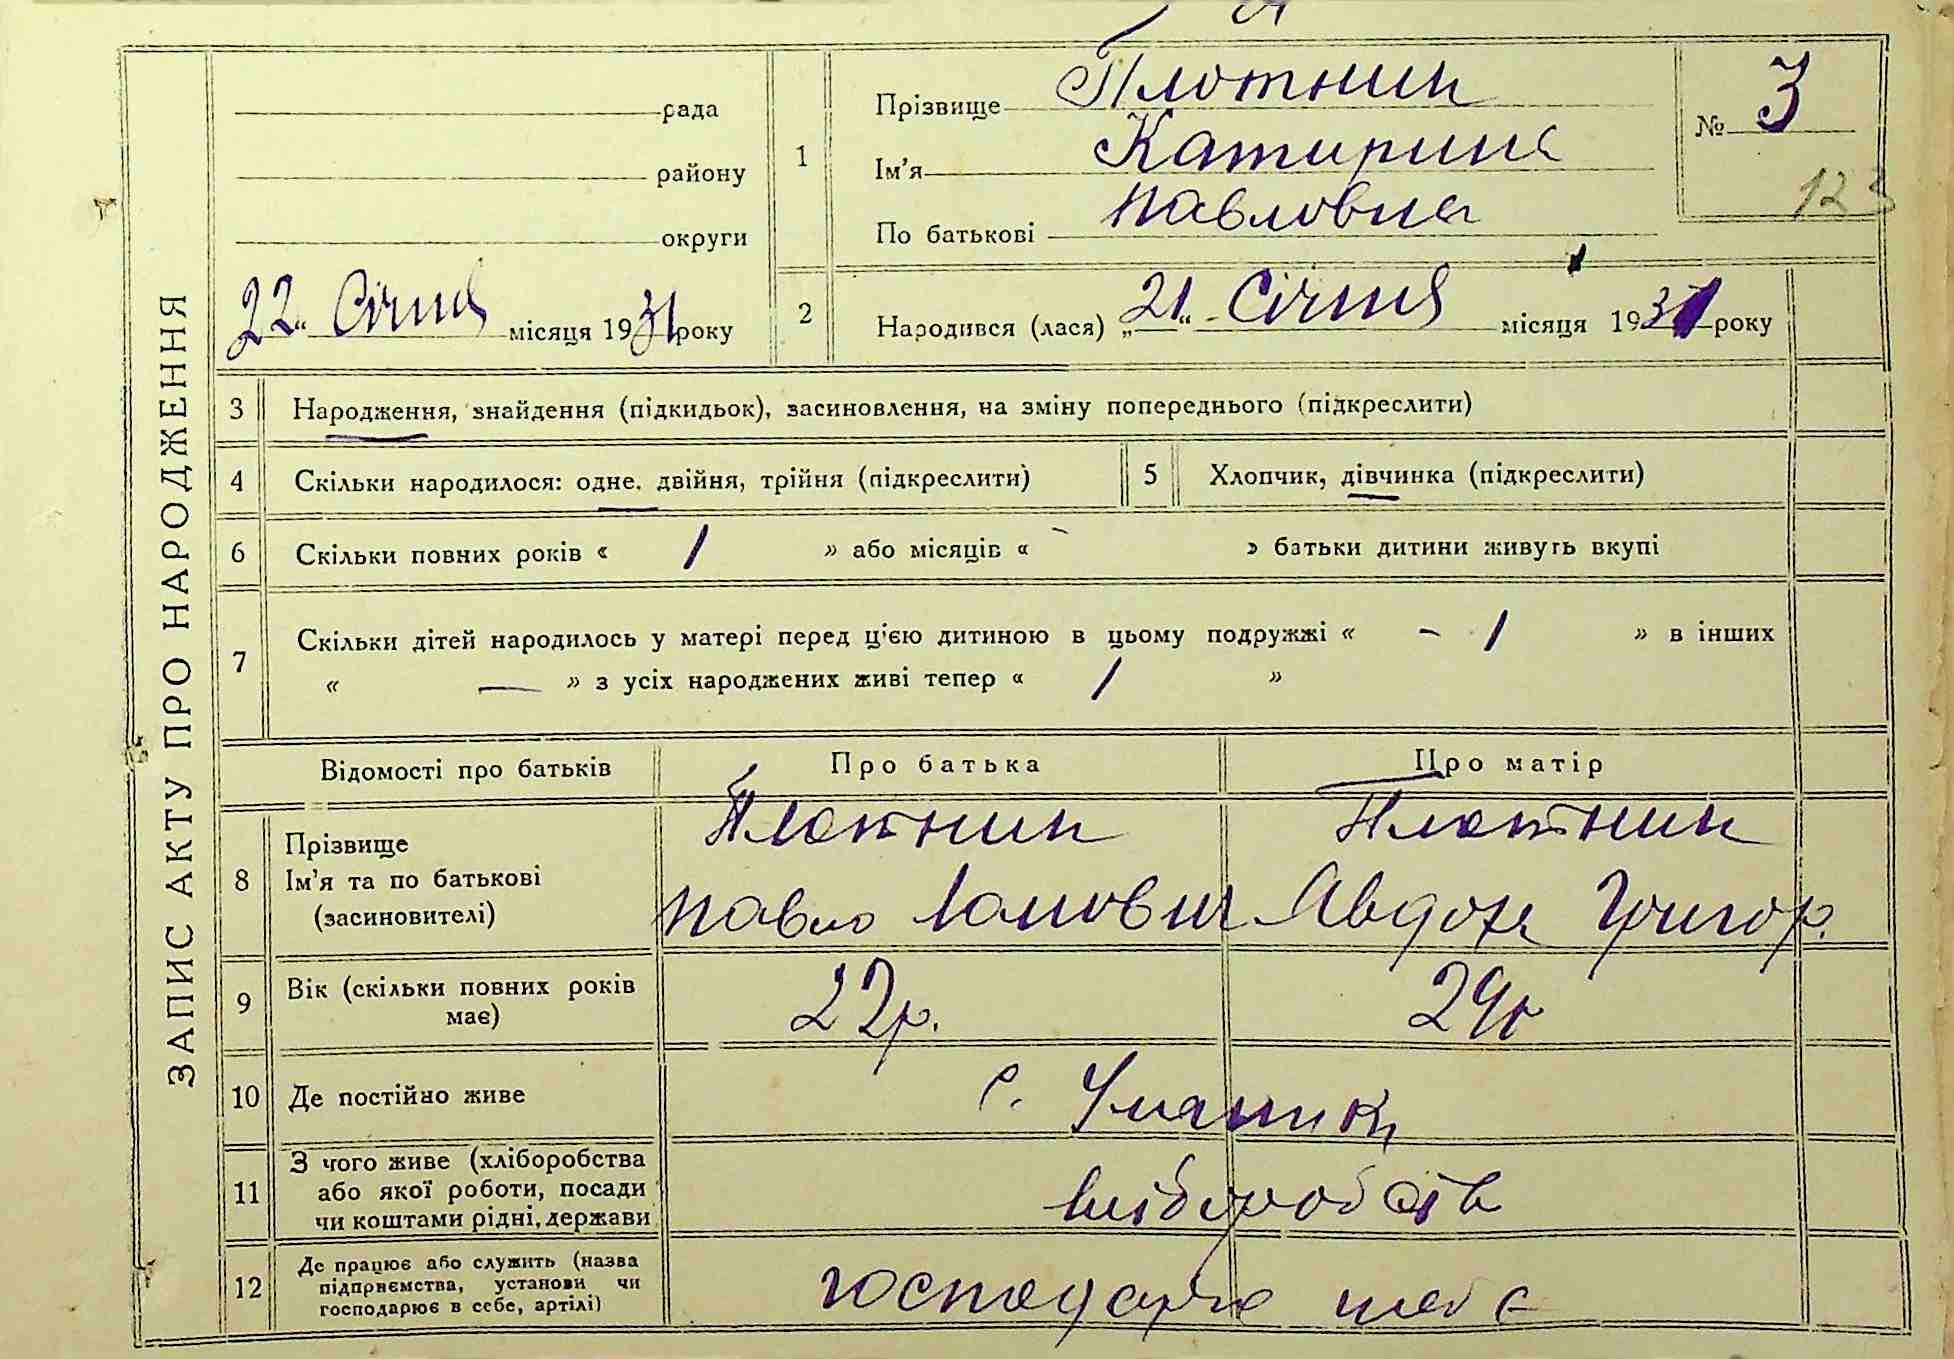 ЗАПИС АКТУ ПРО НАРОДЖЕННЯ
рада
району
округи
22 " Січня місяця 1931 року
1
Прізвище Плотник
Ім'я Катирина
По батькові Павловна
№ 3
123
2
Народився (лася) „ 21 “ Січня місяця 1931 року
3 Народження, знайдення (підкидьок), засиновлення, на зміну попереднього (підкреслити)
4 Скільки народилося: одне, двійня, трійня (підкреслити)
5 Хлопчик, дівчинка (підкреслити)
6 Скільки повних років « 1 » або місяців « - » батьки дитини живуть вкупі
7 Скільки дітей народилось у матері перед ц'єю дитиною в цьому подружжі « - 1 » в інших
« — » з усіх народжених живі тепер « 1 »
Відомості про батьків Про батька Про матір
8 Прізвище
Ім'я та по батькові
(засиновителі)
Плотник
Павло
Плотник
Явдоха Григор.
9 Вік (скільки повних років
має)
22р.
24р
10 Де постійно живе
с. Уманик
11 З чого живе (хліборобства
або якої роботи, посади
чи коштами рідні, держави
хліборобств
12 Де працює або служить (назва
підприємства, установи чи
господарює в себе, артілі)
господарює